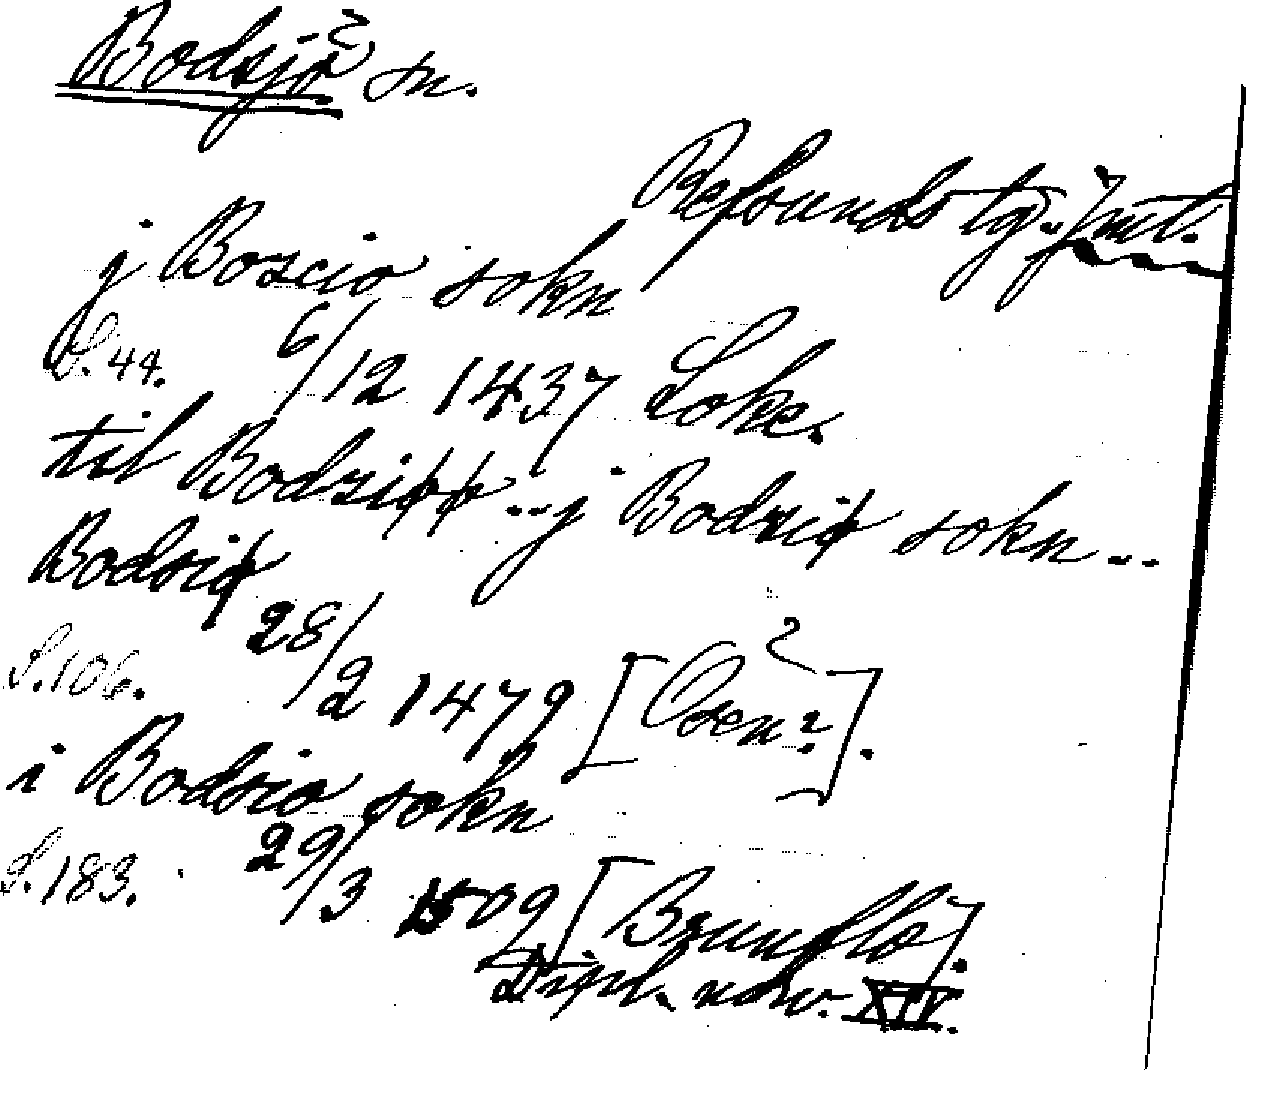 Bodsjö sn.
Refsunds tg. Jmt.
j Boscio sokn
S. 44. 6/12 1437 Loke.
til Bodziøø... j Bodziø sokn...
Bodsiø
S. 106. 28/2 1479 [Osen?].
i Bodsio sokn
S. 183. 29/3 1509 [Brunflo].
Dipl. norv. XIV.